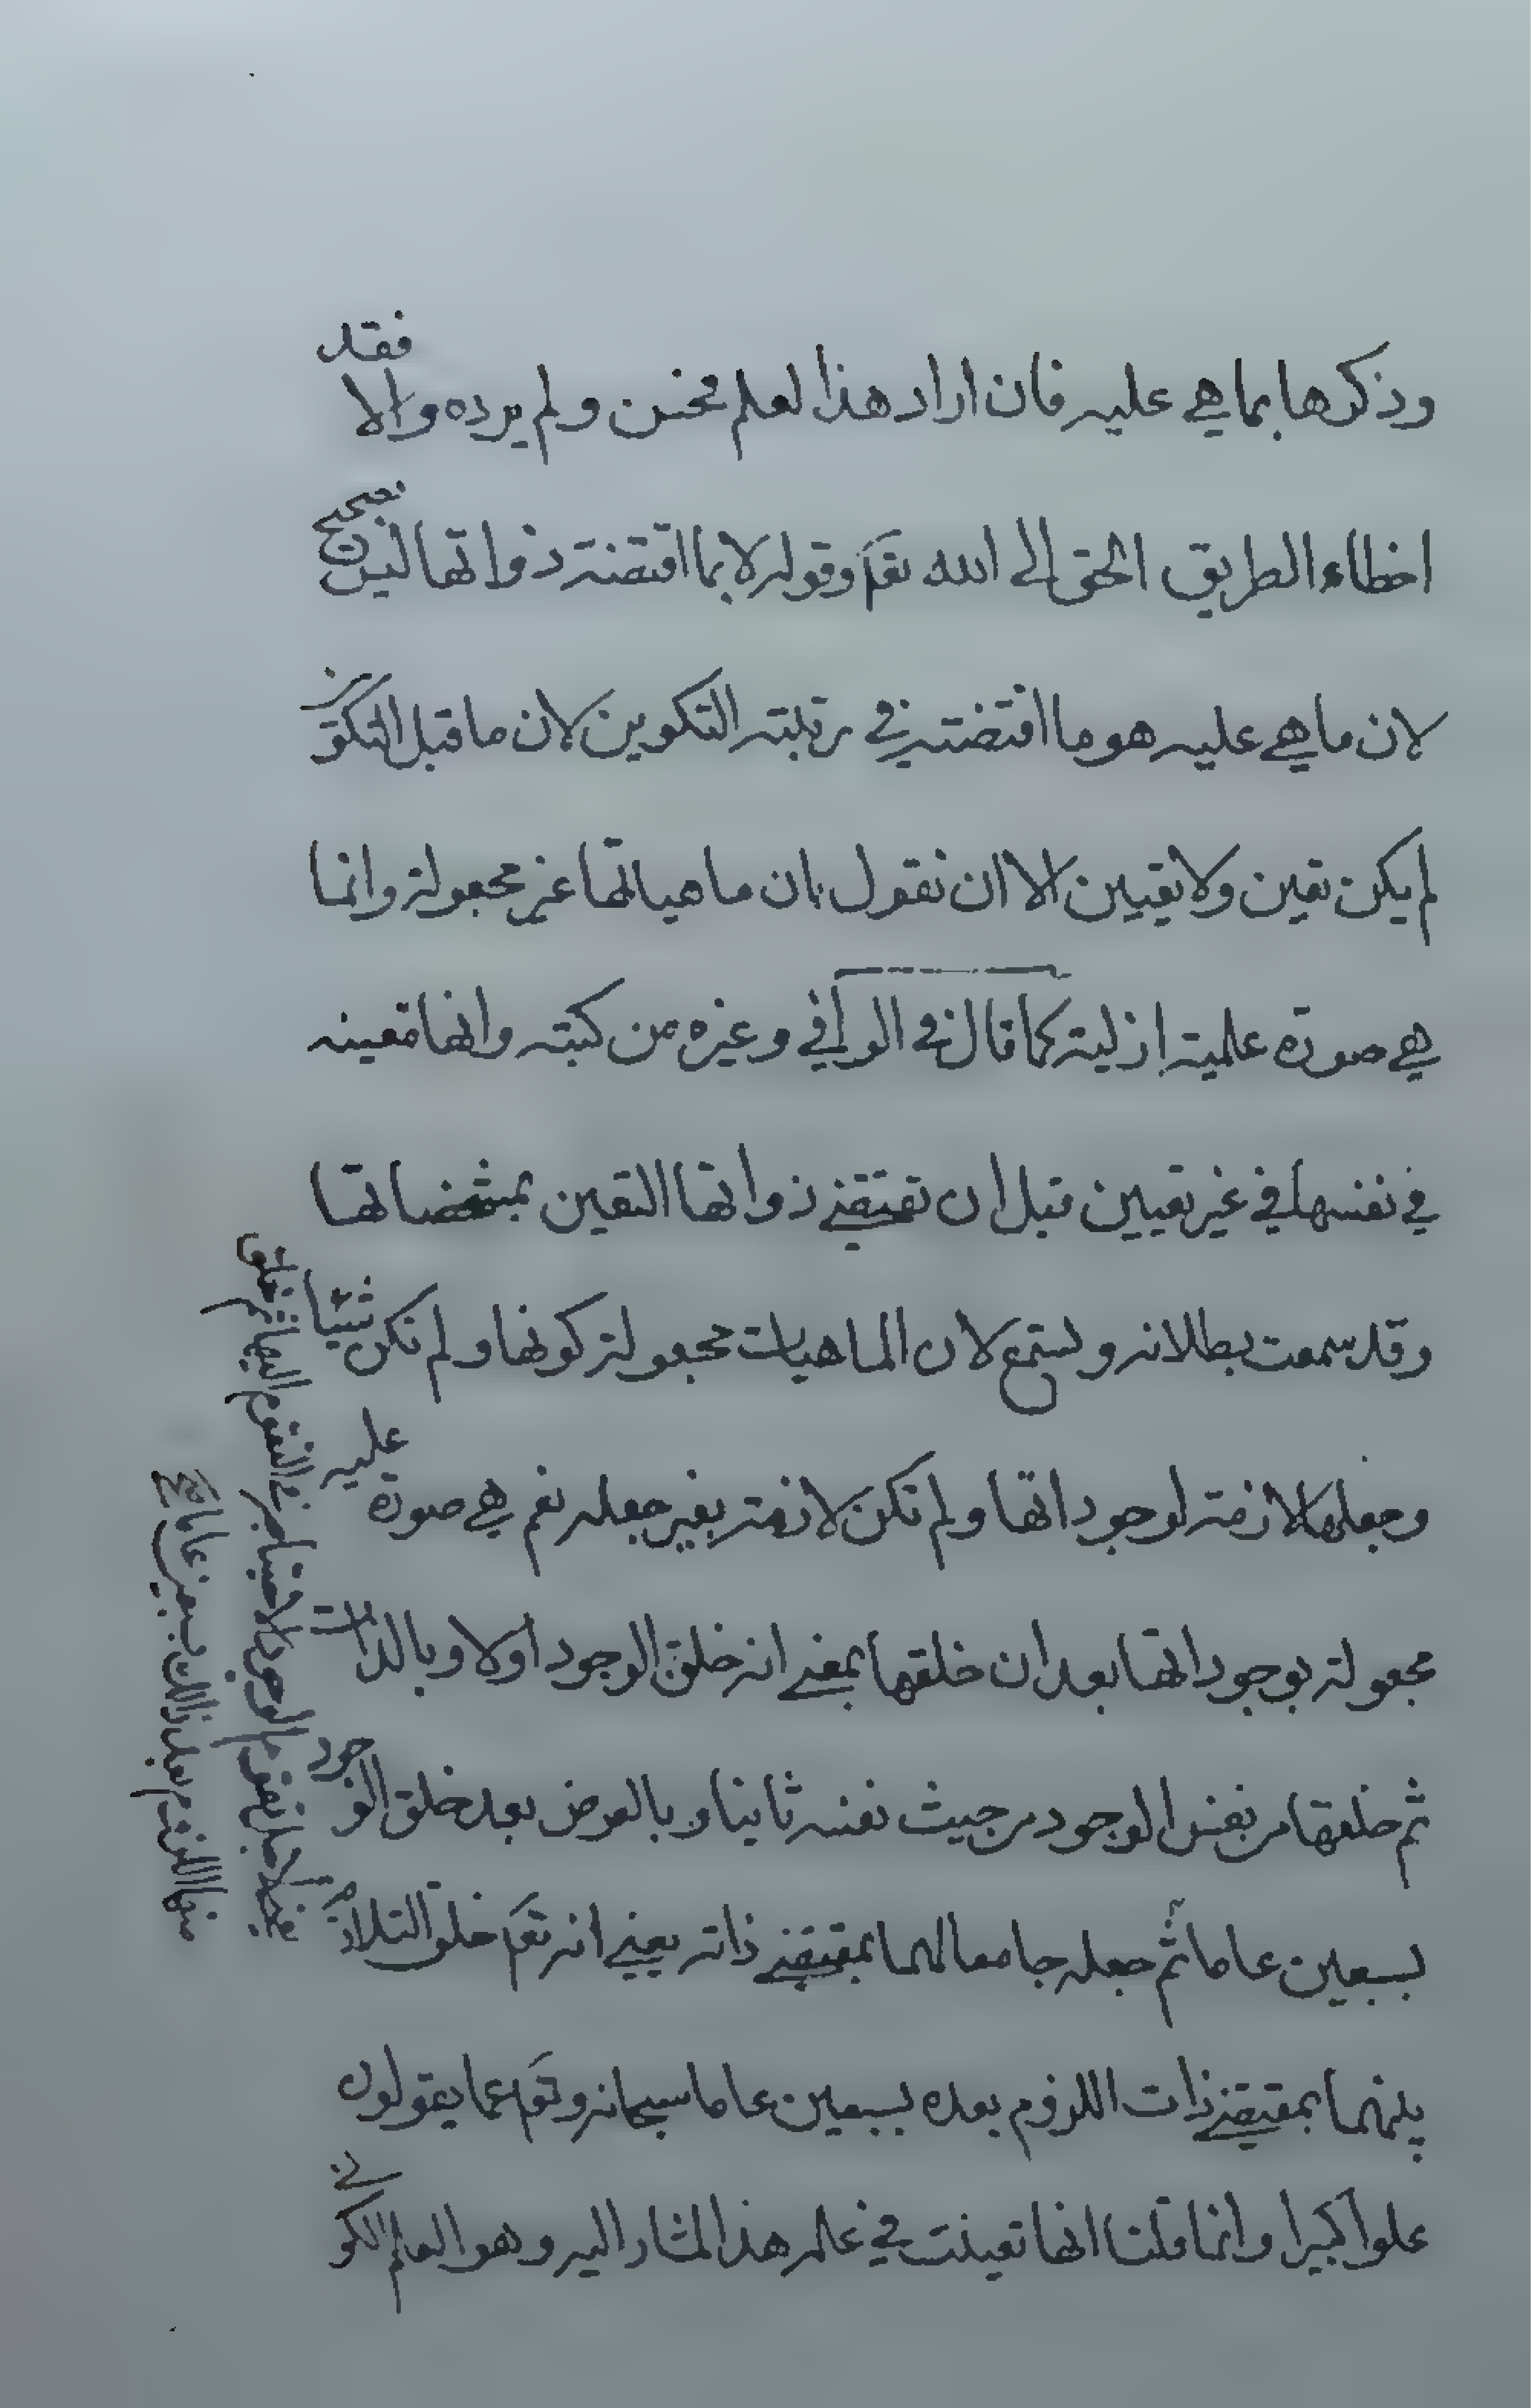 وذكرها بما هي عليه فان اراد هذا لعلم فحسن ولم يرده والا فقد
اخطاء الطريق الحق الى الله تعالى وقوله لا بما اقتضته ذواتها ليس بصحيح
لان ما هي عليه هو ما اقتضته في رتبته التكوين لان ما قبل التكوين
لم يكن تعين ولا تعيين الا ان نقول بان ماهياتها غير مجعولة وانما
هي صورة علمية ازلية كما قال في الوافي وغيره من كتبه وانها متعينه
في نفسها في غير تعيين قبل ان تقتضي ذواتها التعين بمشخصاتها
وقد سمعت بطلانه وستسمع لان الماهيات مجعولة كونها ولم تكن شيئا
وجعلها لازمة لوجوداتها ولم تكن لازمة بغير جعله نعم هي صورة علمية
مجعولة بوجوداتها بعد ان خلقها بمعنى انه خلق الوجود اولا وبالذات
ثم خلقها من نفس الوجود من حيث نفسه ثانيا وبالعرض بعد خلق الوجود
بسبعين عاما ثم جعله جامعا لهما بمقتضى ذاته يعني انه تعالى خلق التلازم
بينهما بمقتضى ذات اللزوم بعده بسبعين عاما سبحانه وتعالى عما يقولون
علوا كبيرا وانما قلنا انها تعينت في علمه هذا المشار اليه وهو العلم الكوني